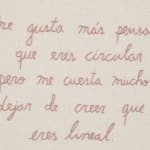 me gusta más pensar
que eres circular
pero me cuesta mucho
dejar de creer que
eres lineal.